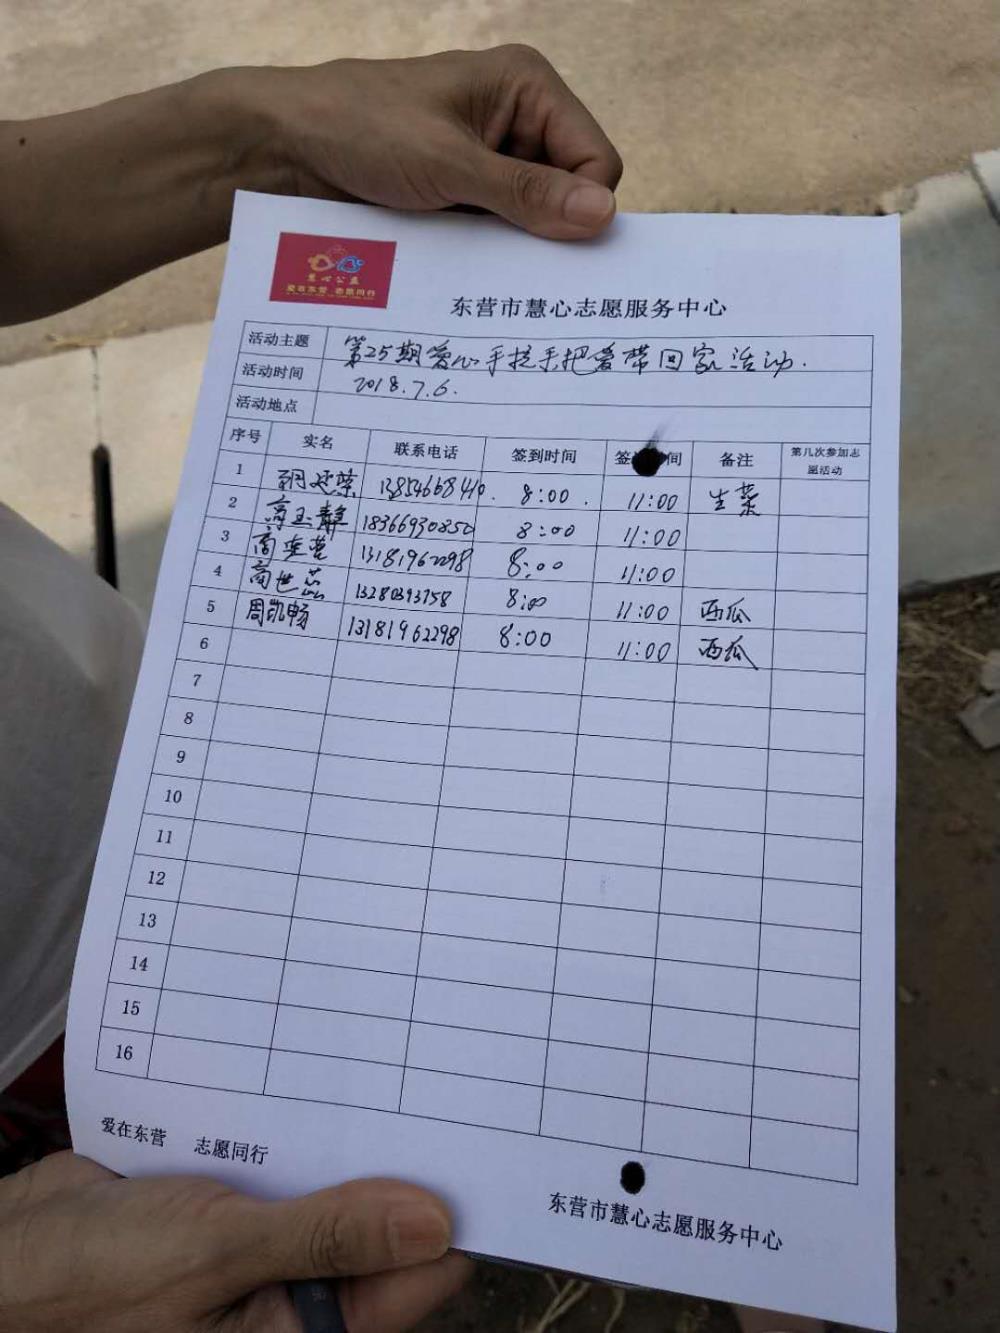 慧心公益
爱在东营 志愿同行
东营市慧心志愿服务中心
活动主题 第25期爱心手拉手把爱带回家活动.
活动时间 2018.7.6.
活动地点
序号 实名 联系电话 签到时间 签 间 备注 第几次参加志愿活动
1 13854668410. 8:00. 11:00 生菜
2 高玉静 18366930850 8:00 11:00
3 商东营 13181962298 8:00 11:00
4 商世蕊 13280393758 8:00 11:00 西瓜
5 周凯畅 13181962298 8:00 11:00 西瓜
6
7
8
9
10
11
12
13
14
15
16
爱在东营 志愿同行
东营市慧心志愿服务中心